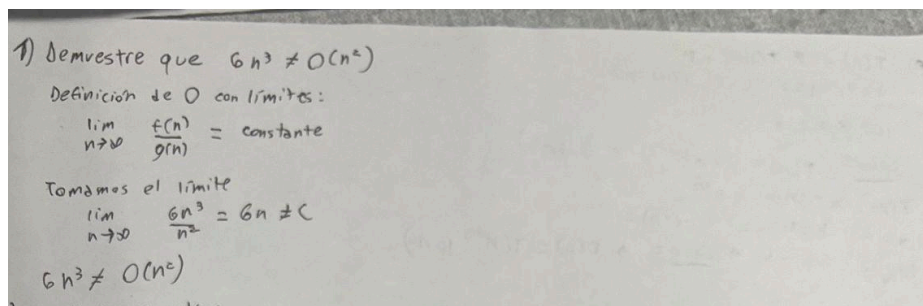 1) Demuestre que 6n³ ≠ O(n²)
Definición de O con límites:
lim n→∞ f(n)/g(n) = constante
Tomamos el límite
lim n→∞ 6n³/n² = 6n ≠ C
6n³ ≠ O(n²)